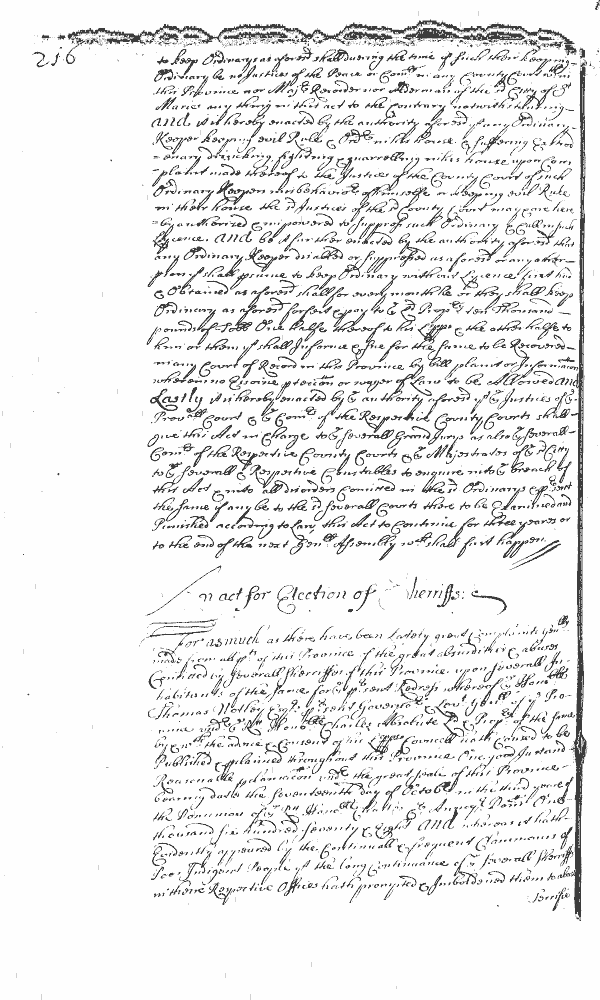 216
to keep Ordinary as aforesd shall during the time of such their keeping
Ordinary be no Justices of the Peace or Comr in any County Court within
this Province nor Majr Recorder nor Alderman of the sd City of St
Maries any thing in this act to the contrary notwithstanding
And itt is hereby enacted by the authority aforesd if any Ordinary
Keeper keeping evill Rule & Ordr in his house & suffering
drincking, fighting & quarrelling in his house upon Com
plaint made thereof to the Justices of the County Court of such
Ordinary Keepers misbehavior of himselfe or keeping evil Rule
in their house the sd Justices of the sd County Court may & are here
by authorized & impowered to suppress such Ordinary & call in such
Lycence. And be it further enacted by the authority aforesd that
any Ordinary Keeper disabled or suppressed as aforesd or any other
pson yt shall psume to keep Ordinary without Lycence first had
& Obtained as aforesd shall for every month he or they shall keep
Ordinary as aforesd forfeit & pay to ye Ld Propr ten Thousand
pounds of Tobb One halfe thereof to his Lspp & the other halfe to
him or them yt shall Informe & sue for the same to be Recovered
in any Court of Record in this Province by bill plaint or Information
wherein no Essoine ptection or wager of Law to be Allowed And
Lastly itt is hereby enacted by ye authority aforesd yt ye Justices of ye
Provll Court & ye Comrs of the Respective County Courts shall
give this Act in Charge to ye severall Grand Jurys as also ye severall
Comrs of the Respective County Courts & ye Majestrates of ye sd City
to ye severall & Respective Constables to enquire into ye breach of
this Act & into all disorders Comitted in the sd Ordinarys & psent
the same if any be to the sd severall Courts there to be Examined and
Punished according to Law this Act to Continue for three yeares or
to the end of the next Genll Assembly wch shall first happen
An act for Election of Sherriffs:
For as much as there have been Lately great Complaints
made from all pts of this Province of the great abuses
Comitted by severall Sherriffs of this Province upon severall In
habitants of the same for ye psent Redress whereof ye Honoble
Thomas Notley Esqr psent Governor & of ye Pro
vince under ye Rt Honoble Charles Absolute Ld & Propr of the same
by & wth the advice & Consent of his Upper Councell hath caused to be
Published & plained throughout this Province One good Just and
Reasonable plamacon under the great seale of this Province
bearing date the seventeenth day of October in the third year of
the Dominion of ye Rt Honoble Charles & Annoq Domi One
thousand six hundred seventy & Eight And whereas it hath
Evidently appeared by the Continuall & frequent Clammours of
Poor Indigent People yt the long Continuance of ye severall Sherriffs
in their Respective Offices hath prompted & Imboldened them to abuse